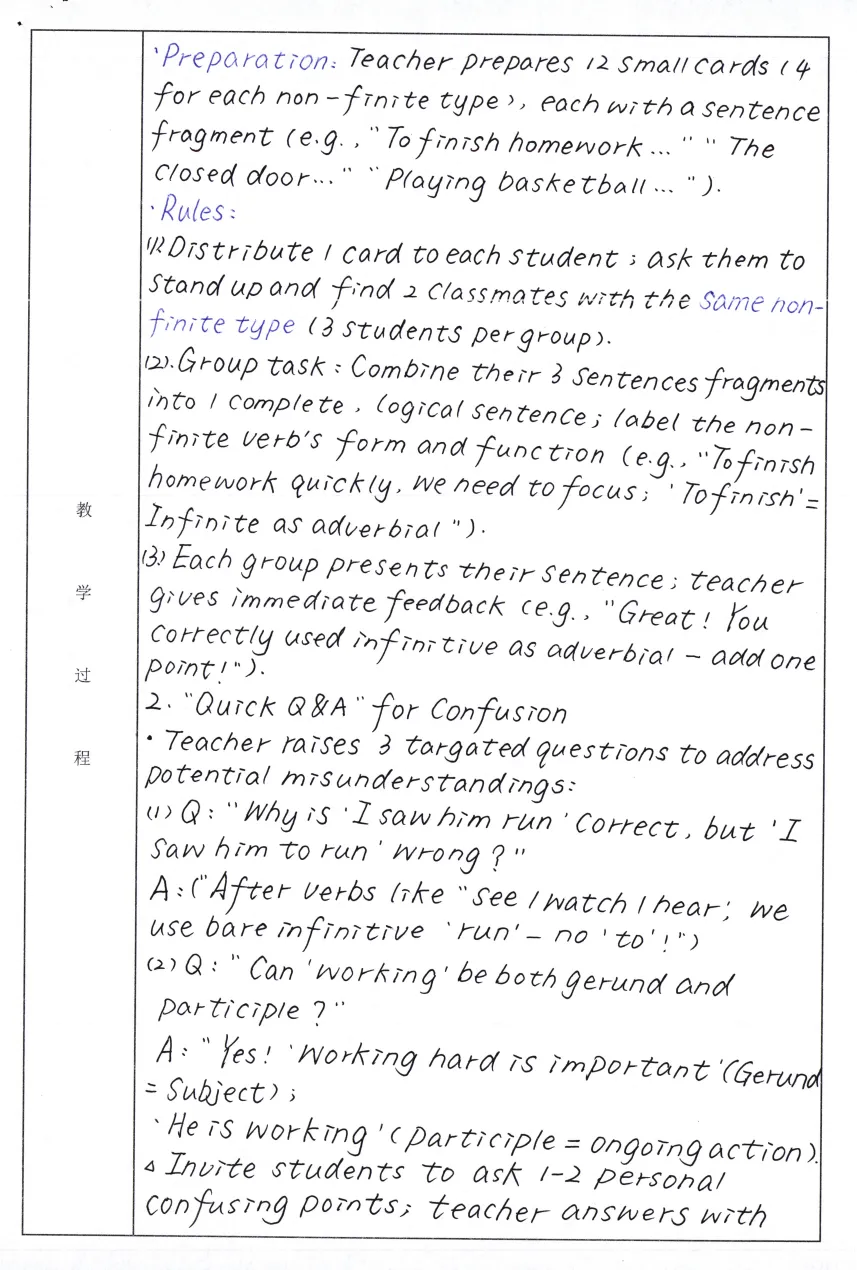 ·Preparation: Teacher prepares 12 small cards (4
for each non-finite type), each with a sentence
fragment (e.g., "To finish homework..." "The
closed door..." "Playing basketball...").
·Rules:
(1) Distribute 1 card to each student; ask them to
stand up and find 2 classmates with the same non-
finite type (3 students per group).
(2). Group task: Combine their 3 sentences fragments
into 1 complete, logical sentence; label the non-
finite verb's form and function (e.g., "To finish
homework quickly, we need to focus; 'To finish'=
Infinite as adverbial").
(3) Each group presents their sentence; teacher
gives immediate feedback (e.g., "Great! You
correctly used infinitive as adverbial - add one
point!").
2. "Quick Q&A" for Confusion
· Teacher raises 3 targated questions to address
potential misunderstandings:
(1) Q: "Why is 'I saw him run' correct, but 'I
saw him to run' wrong?"
A: ("After verbs like "see / watch / hear', we
use bare infinitive 'run' - no 'to'!")
(2) Q: "Can 'working' be both gerund and
participle?"
A: "Yes! 'Working hard is important' (Gerund
= Subject);
'He is working' (participle = ongoing action).
△ Invite students to ask 1-2 personal
confusing points; teacher answers with
教
学
过
程